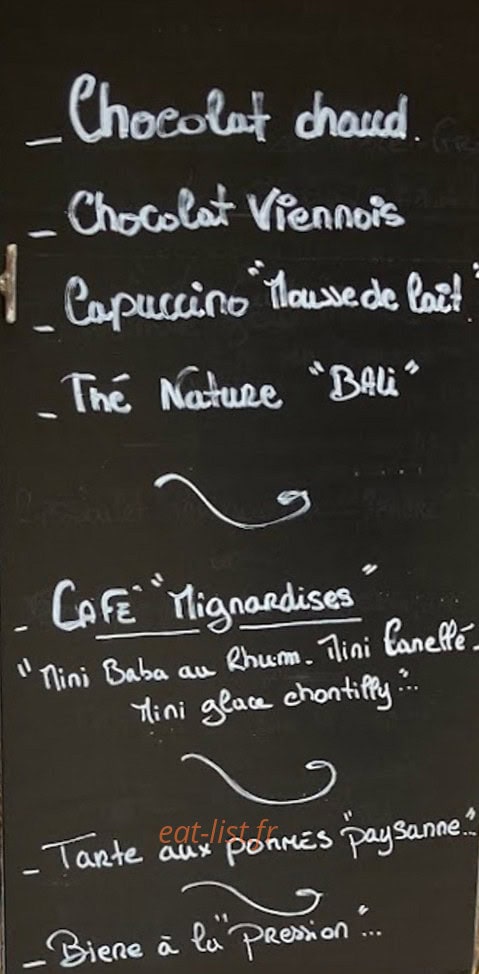 - Chocolat chaud.
- Chocolat Viennois
- Capuccino "Mousse de lait"
- Thé Nature "BALi"
- CAFE "Mignardises"
"Mini Baba au Rhum - Mini Canellé -
Mini glace chantilly"...
eat-list.fr
- Tarte aux pommes "paysanne"...
- Biere à la "pression"...